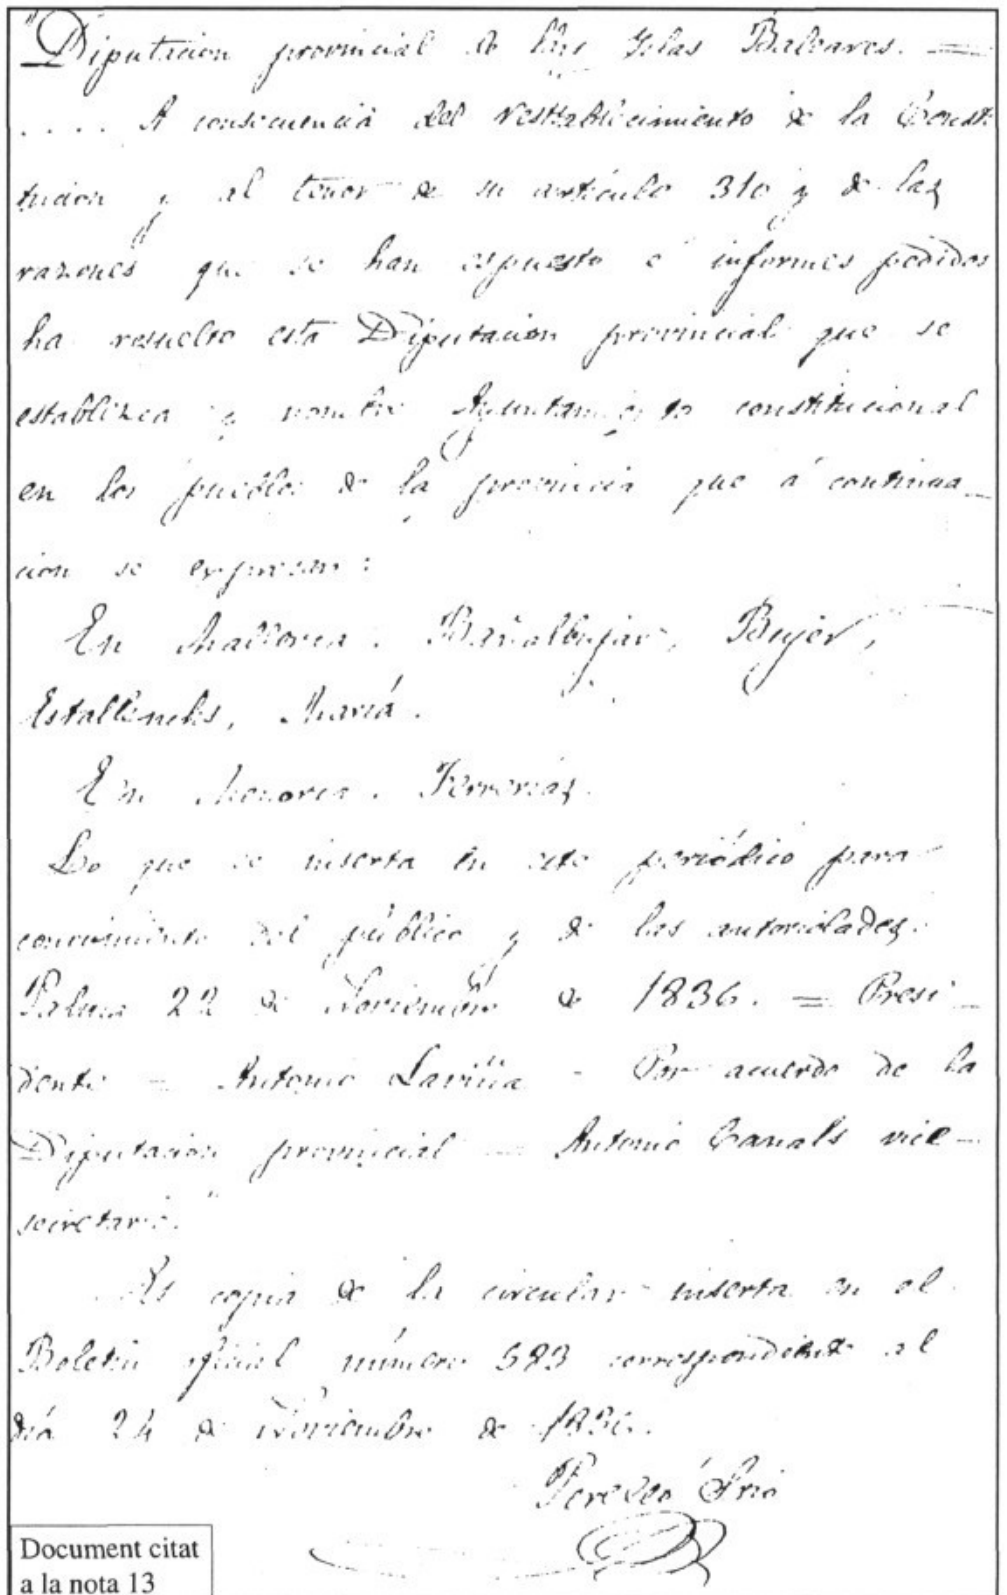 "Diputacion provincial de las Yslas Baleares. =
.... A consecuencia del resttablecimiento de la Consti
tucion y al tenor de su artículo 310 y de las
razones que se han espuesto é informes pedidos
ha resuelto esta Diputacion provincial que se
establezca y nombre Ayuntamiento constitucional
en los pueblos de la provincia que á continua_
cion se expresan:
En Mallorca. Bañalbujar, Bujer,
Estallenchs, María.
En Menorca. Ferrerias.
Lo que se inserta en este periódico para
conocimiento del público y de las autoridades.
Palma 22 de Noviembre de 1836. = Presi_
dente = Antonio Laviña - Por acuerdo de la
Diputacion provincial = Antonio Canals vice_
secretario."
Es copia de la circular inserta en el
Boletin oficial número 583 correspondiente al
día 24 de Noviembre de 1836.
Srio
Document citat
a la nota 13